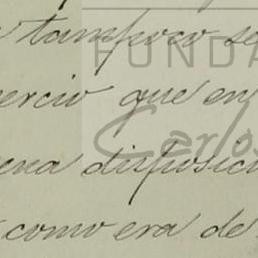 tampoco se
ercio que en
ena disposici
como era de
FUNDA
Carlos